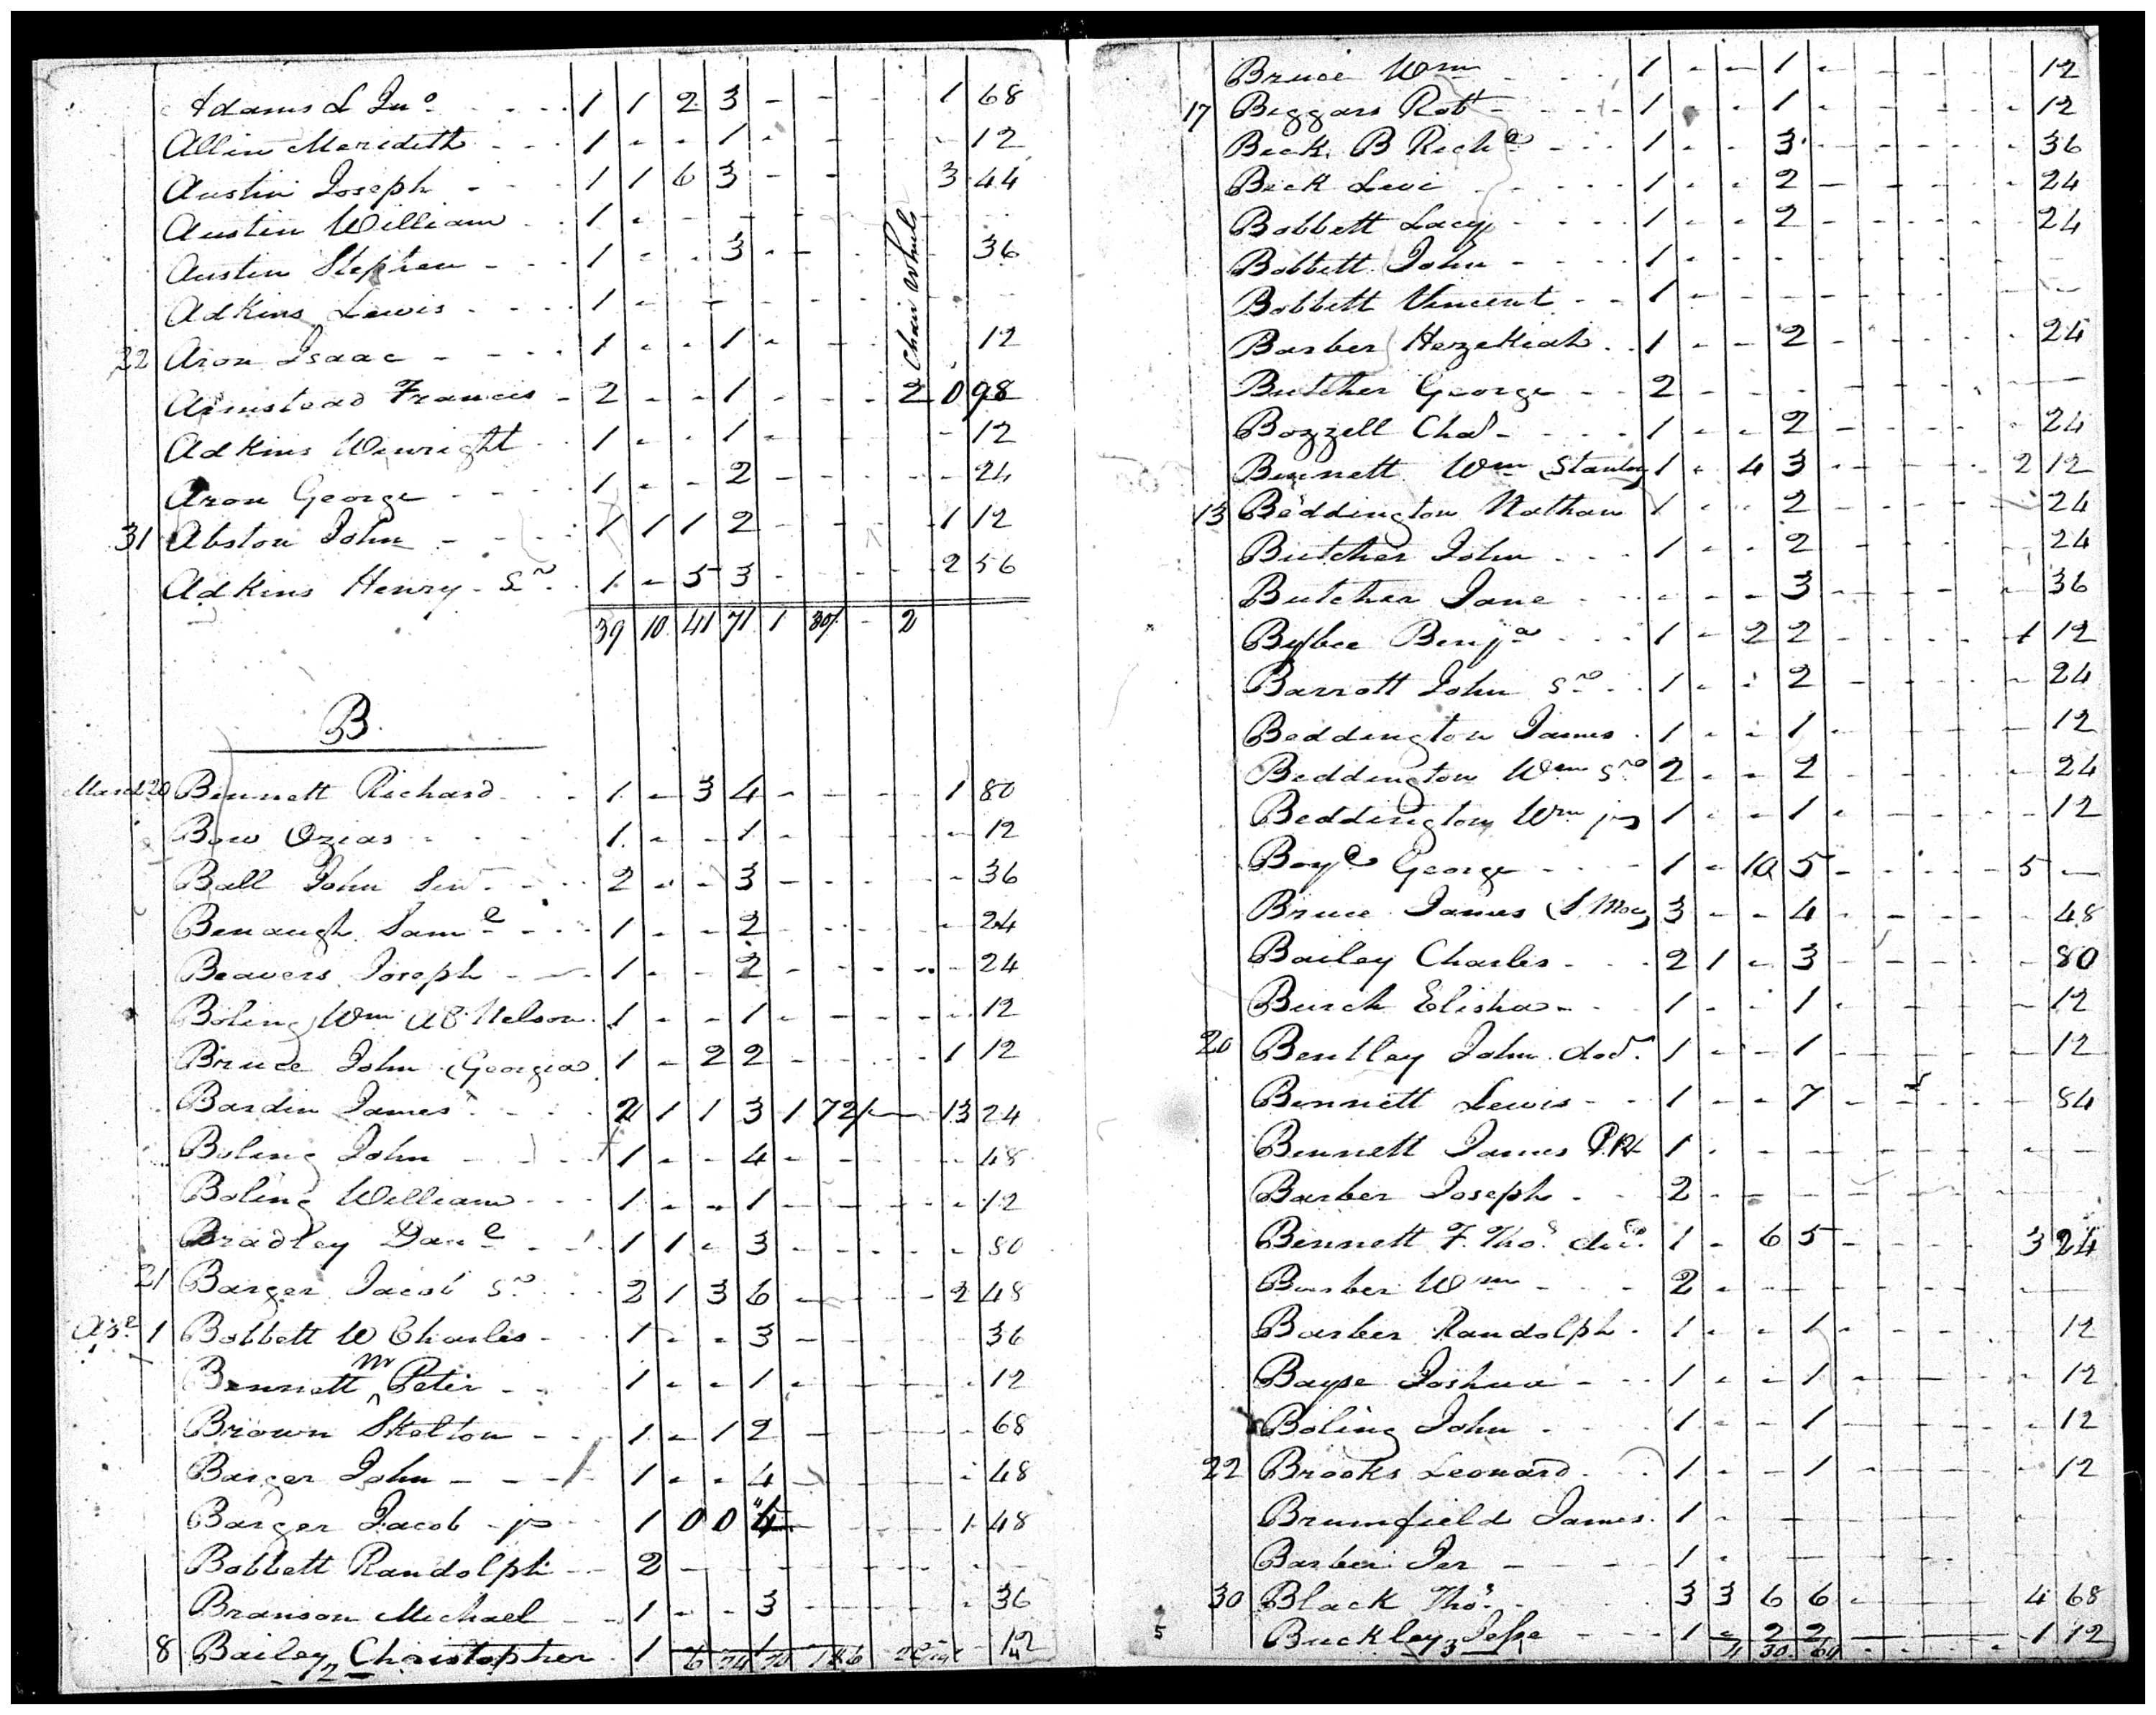 Adams L Jno 1 1 2 3 - - - 1 68
Allin Merideth 1 - - 1 - - - - 12
Austin Joseph 1 1 6 3 - - 3 44
Austin William 1 - - - - - -
Austin Stephen 1 - - 3 - - - 36
Adkins Lewis 1 - - - - - - -
22 Aron Isaac 1 - - 1 - - - 12
Chair wheels
Armstead Francis 2 - - 1 - - - 2 0 98
Adkins Winright 1 - - 1 - - - - 12
Aron George 1 - - 2 - - - - 24
31 Abston John 1 1 1 2 - - - 1 12
Adkins Henry Sr 1 - 5 3 - - - - 2 56
39 10 41 71 1 30/ - 2
B.
March 20 Bennett Richard 1 - 3 4 - - - - 1 80
Bow Ozias 1 - - 1 - - - - - 12
Ball John Senr 2 - - 3 - - - - - 36
Benaugh Saml 1 - - 2 - - - - - 24
Beavers Joseph 1 - - 2 - - - - - 24
Boling Wm AB Nelson 1 - - 1 - - - - - 12
Bruce John (Georgia) 1 - 2 2 - - - - 1 12
Bardin James 2 1 1 3 1 72/ - - 13 24
Boling John 1 - - 4 - - - - - 48
Boling William 1 - - 1 - - - - - 12
Bradley Danl 1 1 - 3 - - - - - 80
21 Barger Jacob Sr 2 1 3 6 - - - - 2 48
Apl 1 Bobbett W Charles 1 - - 3 - - - - - 36
Bennett M Peter 1 - - 1 - - - - - 12
Brown Skelton 1 - 1 2 - - - - - 68
Barger John 1 - - 4 - - - - - 48
Barger Jacob jr 1 0 0 4 - - - - 1 48
Bobbett Randolph 2 - - - - - - - - -
Branson Michael 1 - - 3 - - - - - 36
8 Bailey Christopher 1 1 - 12
Bruce Wm 1 - - 1 - - - - - 12
17 Beggars Robt 1 - - 1 - - - - - 12
Beck B Richd 1 - - 3 - - - - - 36
Beck Levi 1 - - 2 - - - - - 24
Bobbett Lacy 1 - - 2 - - - - - 24
Bobbett John 1 - - - - - - - - -
Bobbett Vincent 1 - - - - - - - - -
Barber Hezekiah 1 - - 2 - - - - - 24
Butcher George 2 - - - - - - - - -
Bozzell Chas 1 - - 2 - - - - - 24
Bennett Wm Stanley 1 - 4 3 - - - - 2 12
13 Beddington Nathan 1 - - 2 - - - - - 24
Butcher John 1 - - 2 - - - - - 24
Butcher Jane - - - 3 - - - - - 36
Bybee Benja 1 - 2 2 - - - - 1 12
Barrott John Sr 1 - - 2 - - - - - 24
Beddington James 1 - - 1 - - - - - 12
Beddington Wm Sr 2 - - 2 - - - - - 24
Beddington Wm jr 1 - - 1 - - - - - 12
Boyd George 1 - 10 5 - - - - 5 -
Bruce James (S Moy) 3 - - 4 - - - - - 48
Bailey Charles 2 1 - 3 - - - - - 80
Burch Elisha 1 - - 1 - - - - - 12
20 Bentley John decd 1 - - 1 - - - - - 12
Bennett Lewis 1 - - 7 - - - - - 84
Bennett James P.R 1 - - - - - - - - -
Barber Joseph 2 - - - - - - - -
Bennett F. Thos. decd 1 - 6 5 - - - - 3 24
Barber Wm 2 - - - - - - - - -
Barber Randolph 1 - - 1 - - - - - 12
Bayse Joshua 1 - - 1 - - - - - 12
Boling John 1 - - 1 - - - - - 12
22 Brooks Leonard 1 - - 1 - - - - - 12
Brumfield James 1 - - - - - - -
Barber Jer 1 - - - - -
30 Black Thos 3 3 6 6 - - - - 4 68
Buckley Jesse 1 - 2 2 - - - - 1 12